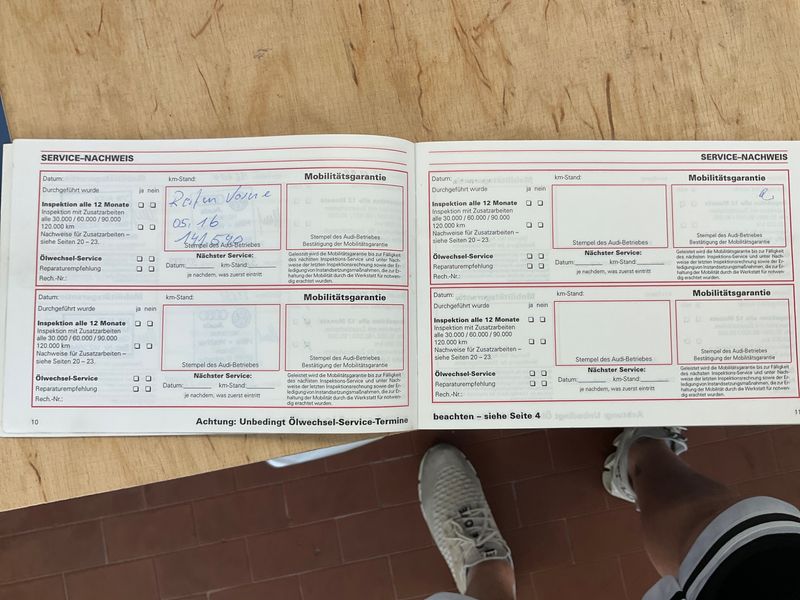 SERVICE–NACHWEIS
Datum: km-Stand: Mobilitätsgarantie
Durchgeführt wurde ja nein
Inspektion alle 12 Monate
Inspektion mit Zusatzarbeiten
alle 30.000 / 60.000 / 90.000
120.000 km
Nachweise für Zusatzarbeiten –
siehe Seiten 20 – 23.
Ölwechsel-Service
Reparaturempfehlung
Rech.-Nr.:
Reifen Vorne
05.16
141.590
Stempel des Audi-Betriebes
Nächster Service:
Datum: km-Stand:
je nachdem, was zuerst eintritt
Stempel des Audi-Betriebes
Bestätigung der Mobilitätsgarantie
Geleistet wird die Mobilitätsgarantie bis zur Fälligkeit
des nächsten Inspektions-Service und unter Nach-
weise der letzten Inspektionsrechnung sowie der Er-
ledigung von Instandsetzungsmaßnahmen, die zur Er-
haltung der Mobilität durch die Werkstatt für notwen-
dig erachtet wurden.
Datum: km-Stand: Mobilitätsgarantie
Durchgeführt wurde ja nein
Inspektion alle 12 Monate
Inspektion mit Zusatzarbeiten
alle 30.000 / 60.000 / 90.000
120.000 km
Nachweise für Zusatzarbeiten –
siehe Seiten 20 – 23.
Ölwechsel-Service
Reparaturempfehlung
Rech.-Nr.:
Stempel des Audi-Betriebes
Nächster Service:
Datum: km-Stand:
je nachdem, was zuerst eintritt
Stempel des Audi-Betriebes
Bestätigung der Mobilitätsgarantie
Geleistet wird die Mobilitätsgarantie bis zur Fälligkeit
des nächsten Inspektions-Service und unter Nach-
weise der letzten Inspektionsrechnung sowie der Er-
ledigung von Instandsetzungsmaßnahmen, die zur Er-
haltung der Mobilität durch die Werkstatt für notwen-
dig erachtet wurden.
10 Achtung: Unbedingt Ölwechsel-Service-Termine
SERVICE–NACHWEIS
Datum: km-Stand: Mobilitätsgarantie
Durchgeführt wurde ja nein
Inspektion alle 12 Monate
Inspektion mit Zusatzarbeiten
alle 30.000 / 60.000 / 90.000
120.000 km
Nachweise für Zusatzarbeiten –
siehe Seiten 20 – 23.
Ölwechsel-Service
Reparaturempfehlung
Rech.-Nr.:
Stempel des Audi-Betriebes
Nächster Service:
Datum: km-Stand:
je nachdem, was zuerst eintritt
Stempel des Audi-Betriebes
Bestätigung der Mobilitätsgarantie
Geleistet wird die Mobilitätsgarantie bis zur Fälligkeit
des nächsten Inspektions-Service und unter Nach-
weise der letzten Inspektionsrechnung sowie der Er-
ledigung von Instandsetzungsmaßnahmen, die zur Er-
haltung der Mobilität durch die Werkstatt für notwen-
dig erachtet wurden.
Datum: km-Stand: Mobilitätsgarantie
Durchgeführt wurde ja nein
Inspektion alle 12 Monate
Inspektion mit Zusatzarbeiten
alle 30.000 / 60.000 / 90.000
120.000 km
Nachweise für Zusatzarbeiten –
siehe Seiten 20 – 23.
Ölwechsel-Service
Reparaturempfehlung
Rech.-Nr.:
Stempel des Audi-Betriebes
Nächster Service:
Datum: km-Stand:
je nachdem, was zuerst eintritt
Stempel des Audi-Betriebes
Bestätigung der Mobilitätsgarantie
Geleistet wird die Mobilitätsgarantie bis zur Fälligkeit
des nächsten Inspektions-Service und unter Nach-
weise der letzten Inspektionsrechnung sowie der Er-
ledigung von Instandsetzungsmaßnahmen, die zur Er-
haltung der Mobilität durch die Werkstatt für notwen-
dig erachtet wurden.
beachten – siehe Seite 4